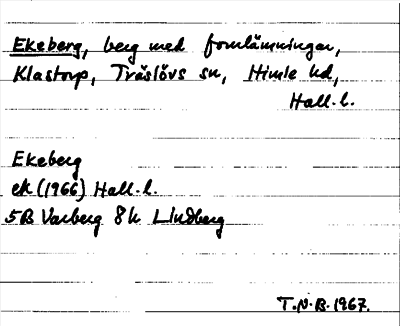 Ekeberg, berg med fornlämningar,
Klastorp, Träslövs sn, Himle hd,
Hall. l.
Ekeberg
ek (1966) Hall. l.
5B Varberg 8h Lindberg
T.N.B. 1967.